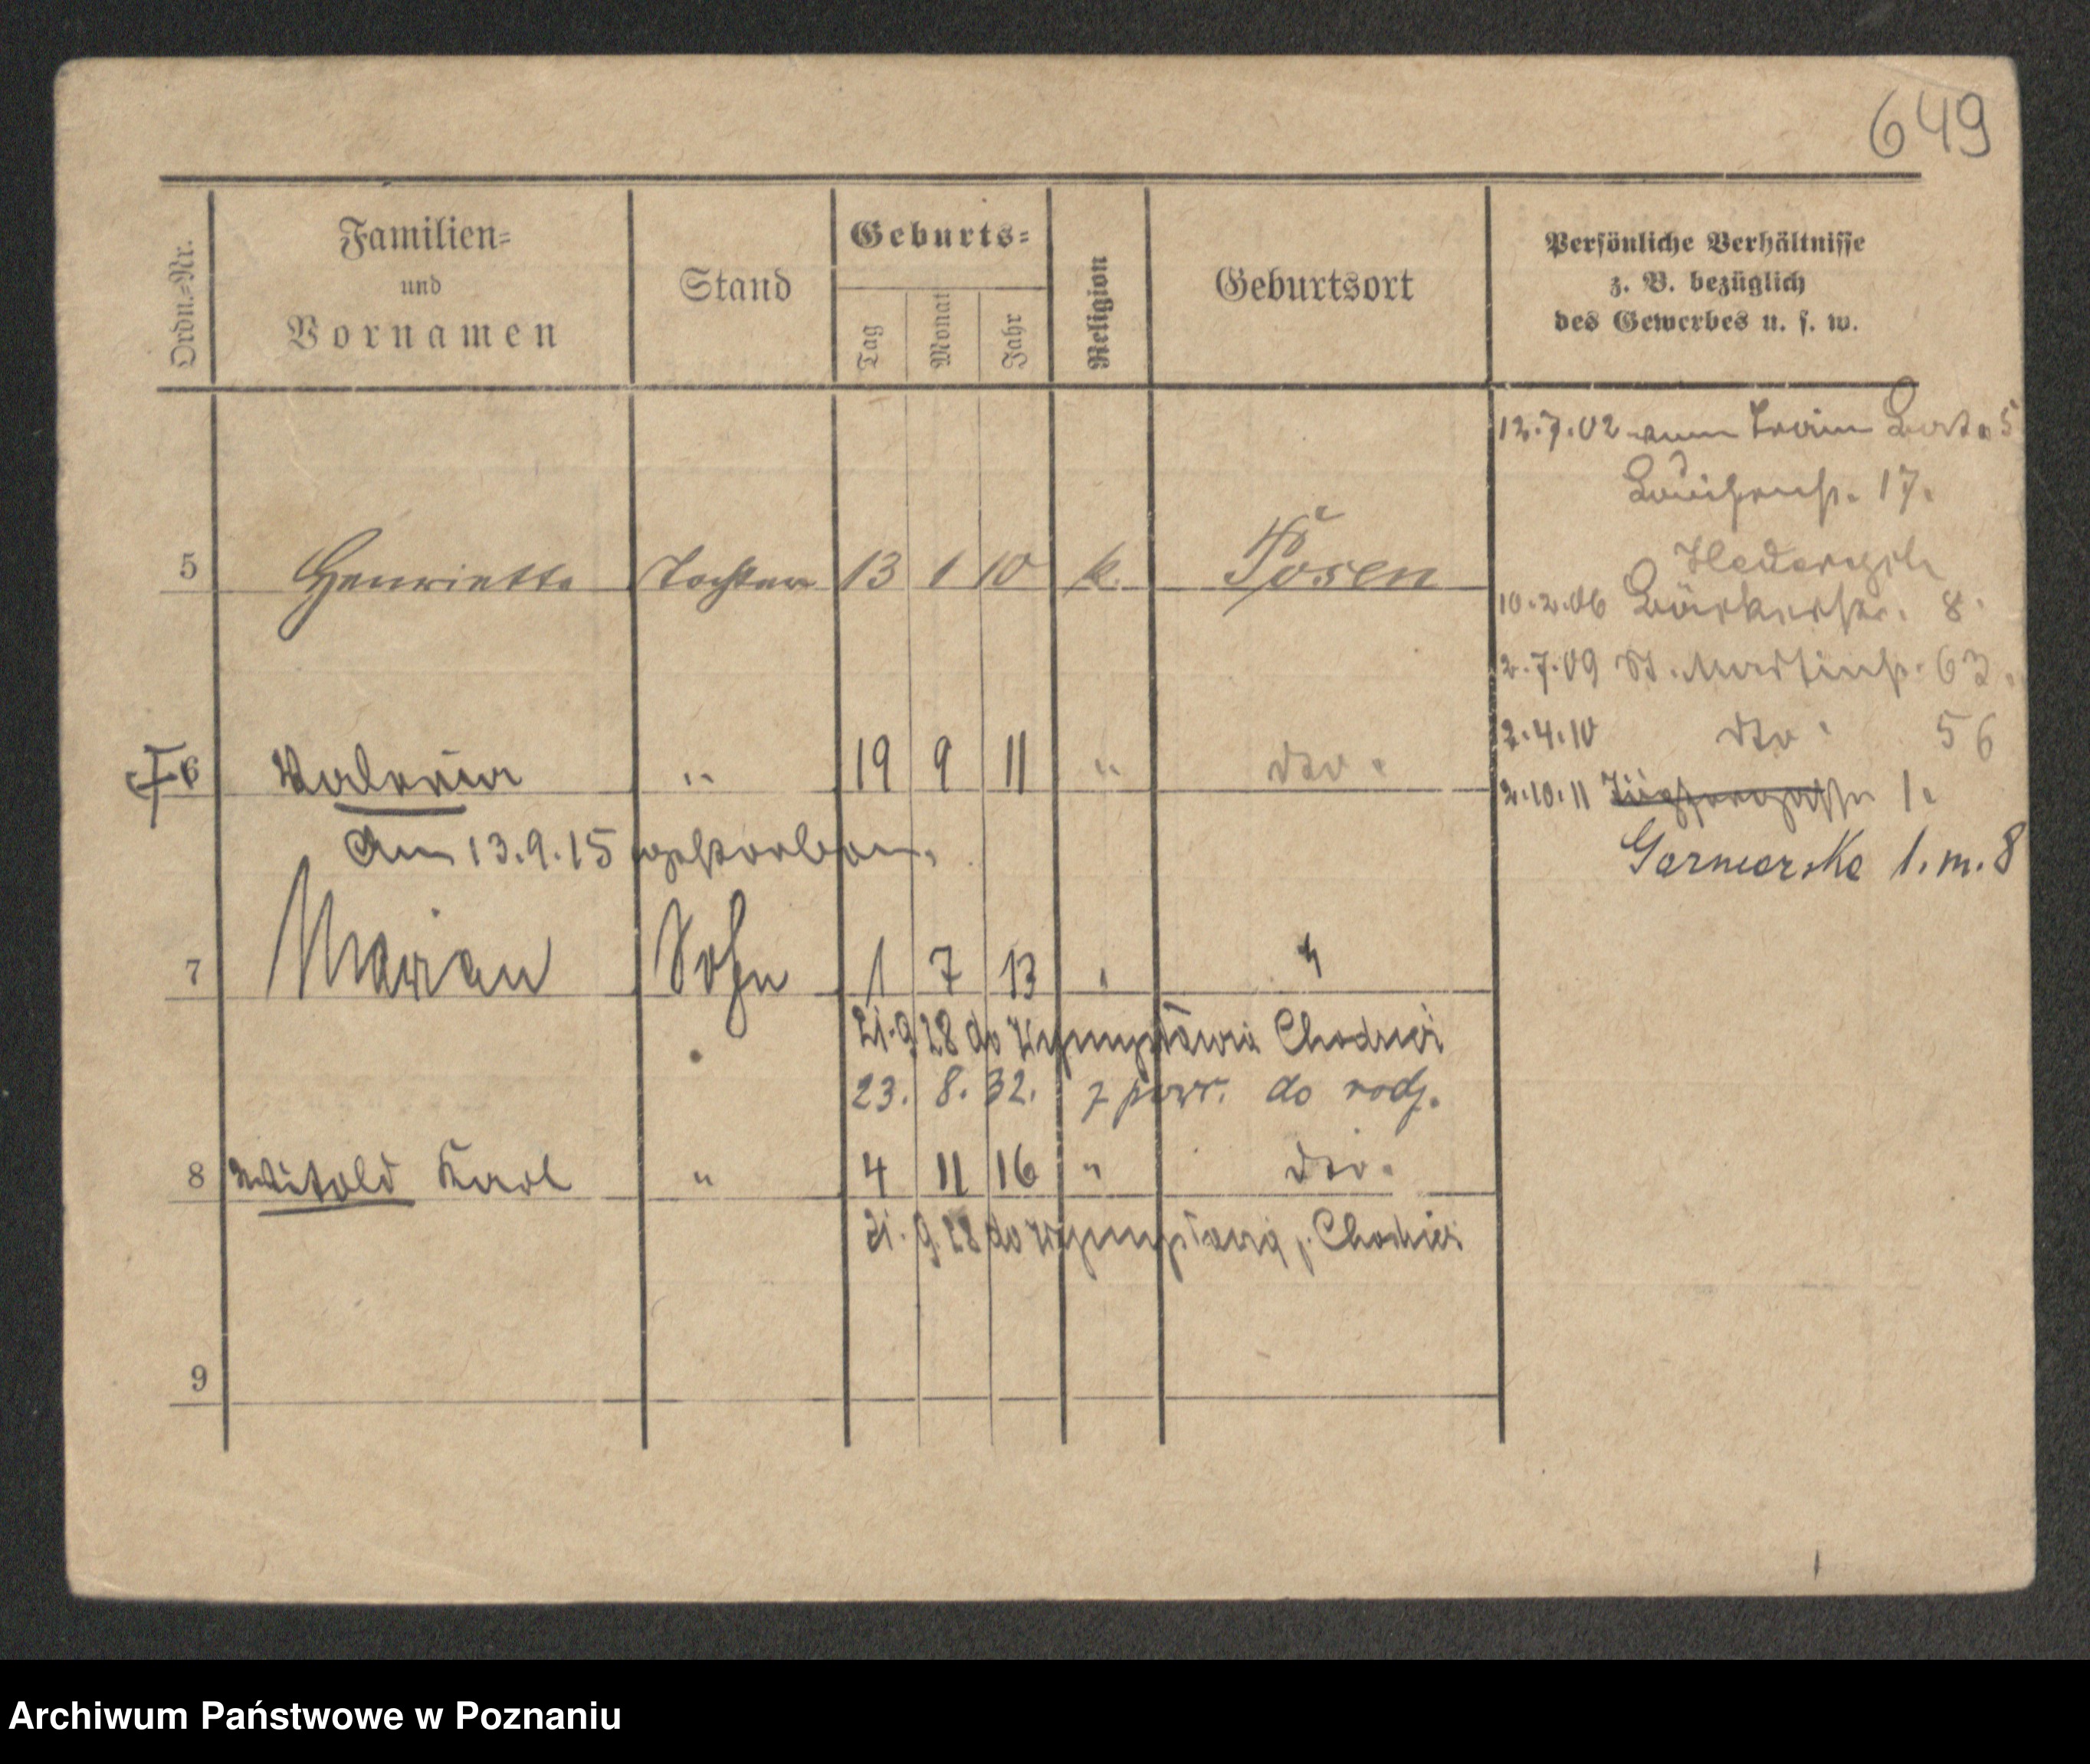 649
Ordn.-Nr.
Familien-
und
Vornamen
Stand
Geburts-
Tag
Monat
Jahr
Religion
Geburtsort
Persönliche Verhältnisse
z. B. bezüglich
des Gewerbes u. s. w.
12.7.02 zum Train Batt. 5
17.
10.2.06 Bäckerstr. 8.
2.7.09 St. Martinstr. 63.
2.4.10 dto. 56
2.10.11 1.
Garncarska 1. m. 8
5 Henriette Tochter 13 1 10 k. Posen
6 Valeria " 19 9 11 " dto.
Am 13.9.15 gestorben.
7 Marian Sohn 1 7 13 " "
21.9.28 do
23. 8. 32. z pow. do rodz.
8 Witold Karl " 4 11 16 " dto.
21.9.28 do
9
Archiwum Państwowe w Poznaniu